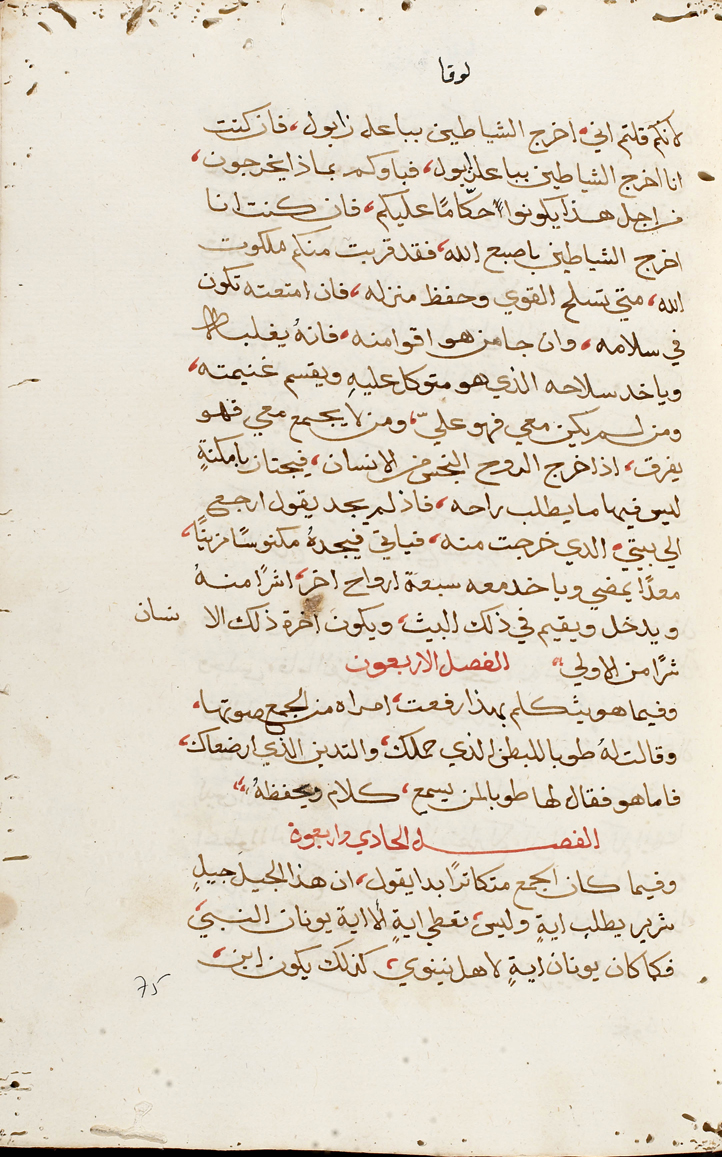 لوقا
لانكم قلتم اني اخرج الشياطين بباعلزابول، فان كنت
انا اخرج الشياطين بباعلزابول، فباوكم بماذا يخرجون،
فراجل هذا يكونوا احكامًا عليكم، فان كنت انا
اخرج الشياطين باصبع الله، فقد قربت منكم ملكوت
الله، متى تسلح القوي وحفظ منزله، فان امتعته تكون
في سلامه، وان جا من هو اقوا منه، فانهُ يغلبه
وياخد سلاحه الذي هو متوكل عليهِ ويقسم غنيمته،
ومن لم يكن معي فهو عليّ، ومن لا يجمع معي فهو
يفرق، اذا خرج الروح النجس من الانسان، فيجتاز بامكنةٍ
ليس فيها ما يطلب راحه، فاذ لم يجد يقول ارجعي
الي بيتي الذي خرجت منه، فياتي فيجدهُ مكنوسًا مزينًا،
معدًا يمضي وياخد معه سبعة ارواح اخر، اشرًا منهُ
ويدخل ويقيم في ذلك البيت، ويكون اخرة ذلك الا نسان
شرًا من الاولي، الفصل الاربعون
وفيما هو يتكلم بهذا رفعت، امراه من الجمع صوتها،
وقالت لهُ طوبا للبطن الذي حملك، والتدين الذي ارضعاك،
فاما هو فقال لها طوبا لمن يسمع، كلام ويحفظهُ،
الفصل الحادي واربعوة
وفيما كان الجمع متكاترًا بدا يقول، ان هذا الجيل جيلٍ
شرير يطلب ايةٍ وليس، يعطي ايةٍ الا اية يونان النبي،
فكما كان يونان ايةٍ لاهل نينوي، كذلك يكون ابن،
75